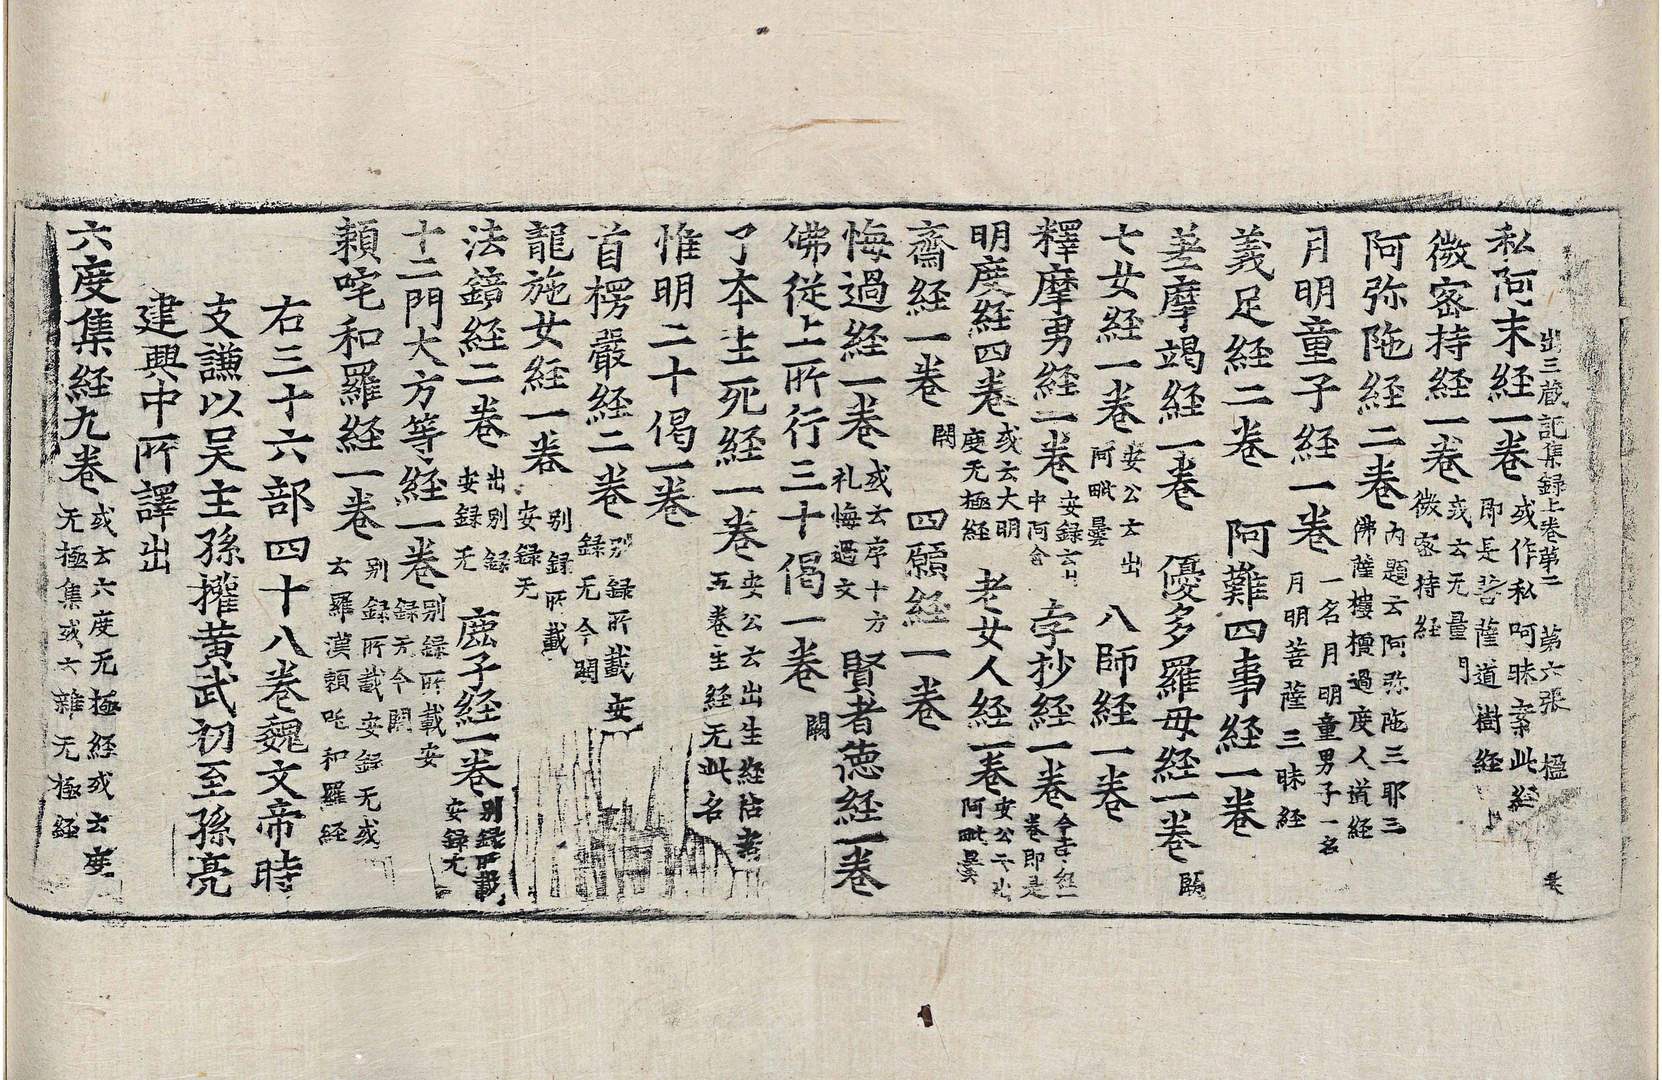 出三藏記集録上卷第二 第六張 楹
私阿末経一卷 或作私呵昧案此経即是菩薩道樹経
微宻持経一卷 或云无量門微宻持経
阿弥陁経二卷 内題云阿弥陁三耶三佛薩樓檀過度人道経
月明童子経一卷 一名月明童男子一名月明菩薩三昧経
義足経二卷 阿難四事経一卷
差摩竭経一卷 優多羅母経一卷 闕
七女経一卷 安公云出阿毗曇 八師経一卷
釋摩男経一卷 安録云出中阿含 孛抄経一卷 今孛経一卷即是
明度経四卷 或云大明度无極経 老女人経一卷 安公云出阿毗曇
齋経一卷 闕 四願経一卷
悔過経一卷 或云序十方礼悔過文 賢者徳経一卷
佛従上所行三十偈一卷 闕
了夲生死経一卷 安公云出生経祐案五卷生経无此名
惟明二十偈一卷
首楞嚴経二卷 别録所載安録无今闕
龍施女経一卷 别録所載安録无
法鏡経二卷 出别録安録无 鹿子経一卷 别録所載安録无
十二門大方等経一卷 别録所載安録无今闕
頼吒和羅経一卷 别録所載安録无或云羅漢頼吒和羅経
右三十六部四十八卷魏文帝時
支謙以吴主孫權黄武初至孫亮
建興中所譯出
六度集経九卷 或云六度无極経或云度无極集或云雜无極経